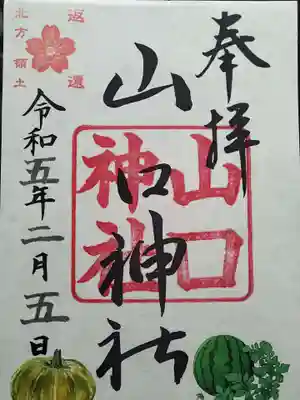 奉拝
山口神社
山口
神社
返還
北方領土
令和五年二月五日